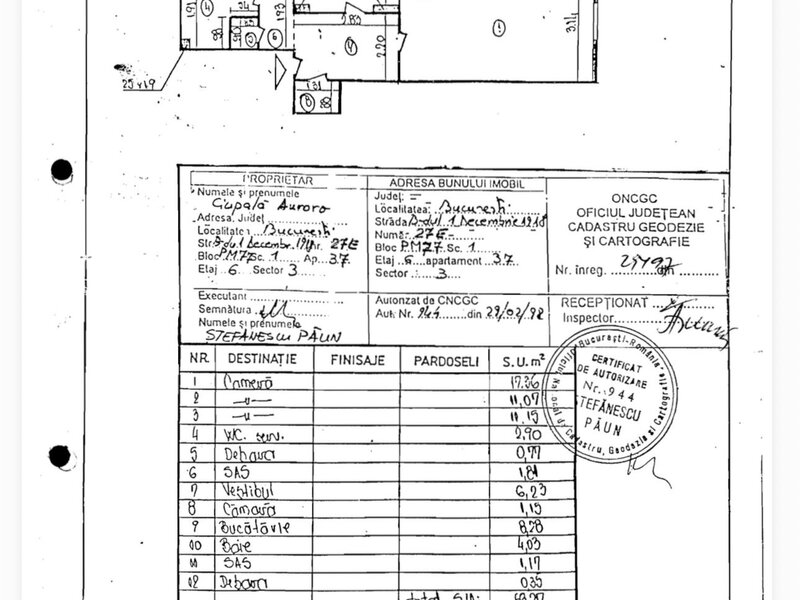 2.83
3.14
1.93
2.20
1
4
5
6
V
8
1.31
25 v19
PROPRIETAR
Numele și prenumele
Ciupală Aurora
Adresa: Județ
Localitatea București
Str. B-dul 1 Decembrie 1918 nr. 27E
Bloc PM77 Sc. 1 Ap. 37
Etaj 6 Sector 3
Executant
Semnătura
Numele și prenumele
STEFĂNESCU PĂUN
ADRESA BUNULUI IMOBIL
Județ: =
Localitatea: București
Strada B-dul 1 Decembrie 1918
Număr 27E
Bloc PM77 Sc. 1
Etaj 6 apartament 37
Sector 3
Autorizat de CNCGC
Aut. Nr. 944 din 28/02/98
ONCGC
OFICIUL JUDEȚEAN
CADASTRU GEODEZIE
ȘI CARTOGRAFIE
Nr. înreg.
RECEPȚIONAT
Inspector
CERTIFICAT
DE AUTORIZARE
Nr. 944
STEFĂNESCU
PĂUN
București-România
Cadastru, Geodezie și Cartografie
NR. DESTINAȚIE FINISAJE PARDOSELI S.U. m²
1 Cameră 17.36
2 —u— 11,07
3 —u— 11.15
4 WC. serv. 2,90
5 Debara 0,77
6 SAS 1,81
7 Vestibul 6,23
8 Cămară 1,15
9 Bucătărie 8,28
10 Baie 4,03
11 SAS 1,17
12 Debara 0.35
total S.U: